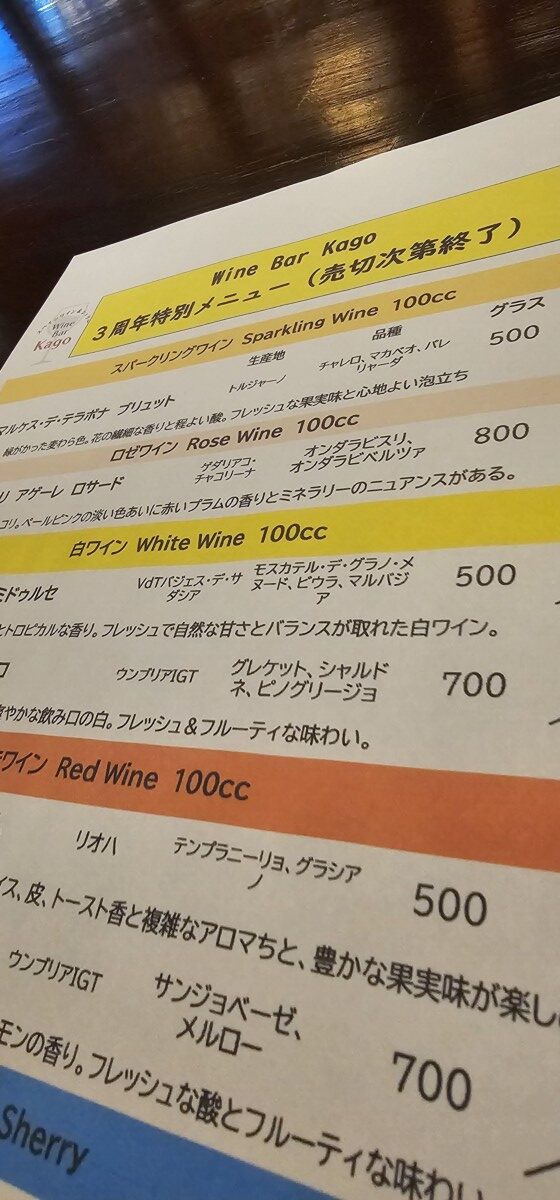 Wine Bar Kago
3周年特別メニュー (売切次第終了)
Wine
Bar
Kago
スパークリングワイン Sparkling Wine 100cc
生産地 品種 グラス
マルケス・デ・テラボナ ブリュット トルジャーノ チャレロ、マカベオ、パレ 500
リャーダ
緑がかった麦わら色。花の繊細な香りと程よい酸。フレッシュな果実味と心地よい泡立ち
ロゼワイン Rose Wine 100cc
リ アゲーレ ロサード ゲダリアコ・ オンダラビスリ、 800
チャコリーナ オンダラビベルツァ
コリ。ペールピンクの淡い色あいに赤いプラムの香りとミネラリーのニュアンスがある。
白ワイン White Wine 100cc
ミドゥルセ VdTバジェス・デ・サ モスカテル・デ・グラノ・メ 500
ダシア ヌード、ビウラ、マルバジ
ア
とトロピカルな香り。フレッシュで自然な甘さとバランスが取れた白ワイン。
ウンブリアIGT グレケット、シャルド 700
ネ、ピノグリージョ
爽やかな飲み口の白。フレッシュ&フルーティな味わい。
ワイン Red Wine 100cc
リオハ テンプラニーリョ、グラシア 500
ノ
イス、皮、トースト香と複雑なアロマちと、豊かな果実味が楽し
ウンブリアIGT サンジョベーゼ、 700
メルロー
モンの香り。フレッシュな酸とフルーティな味わい
Sherry